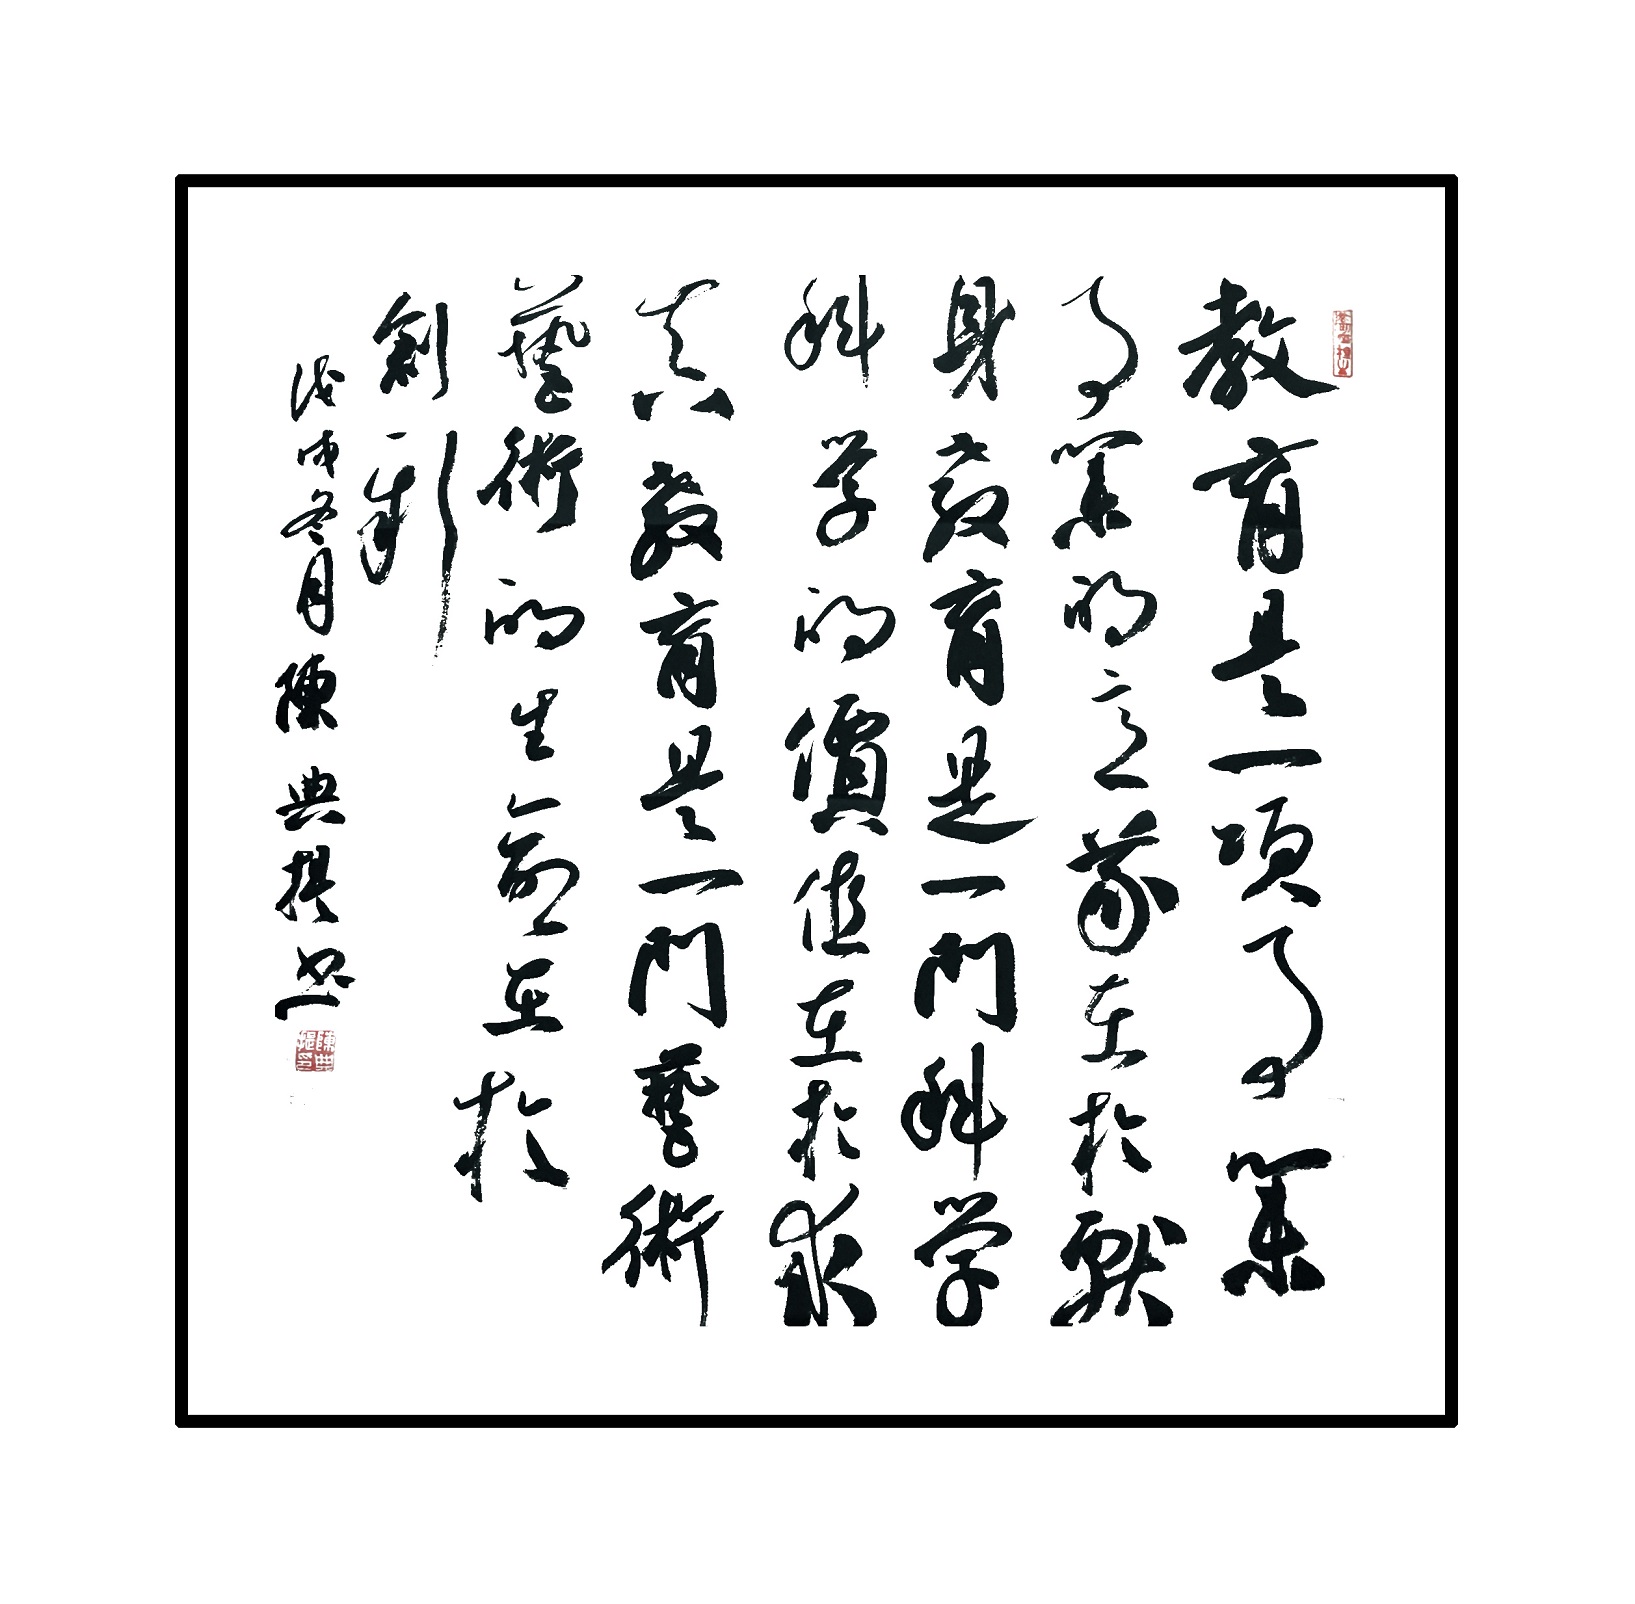 教育是一項事業
事業的意義在於獻
身教育是一門科学
科学的價值在於求
真教育是一門藝術
藝術的生命在於
創新
戊戌冬月陳典提書
陳典提印